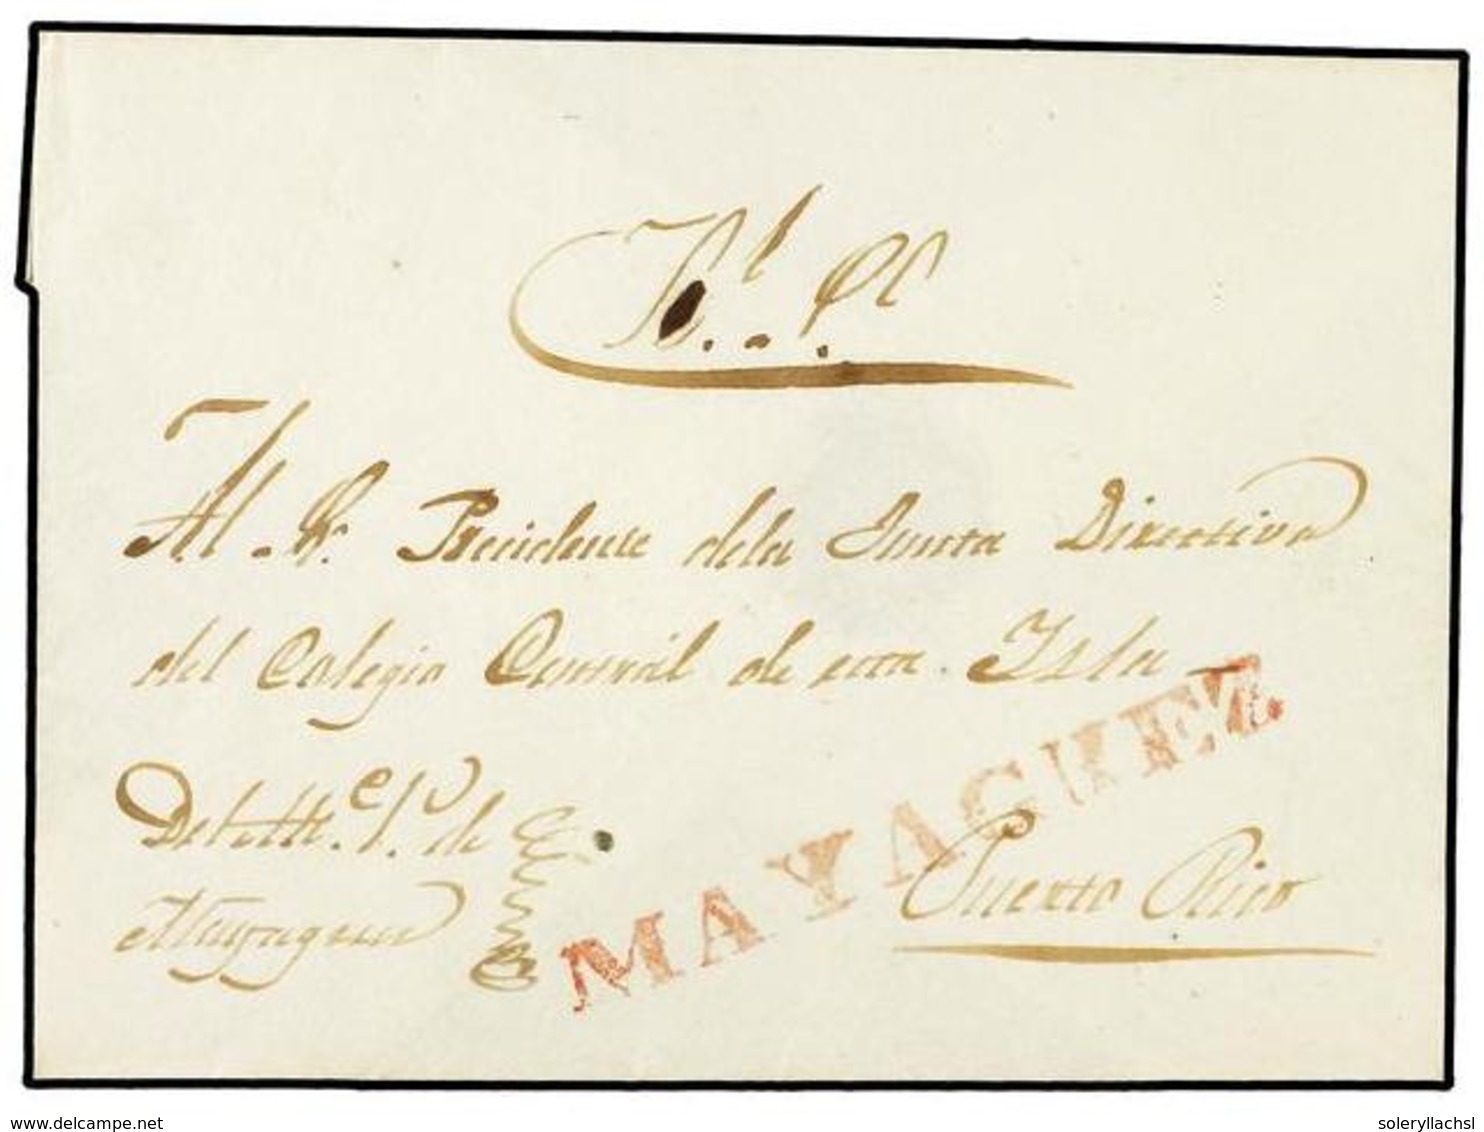 Rl. SS.
Al Sr. Precidente dela Junta Directiva
del Colegio Central de esta Ysla
MAYAGUEZ
Del Altte. 1º. de
Mayaguez
Puerto Rico
www.delcampe.com
soleryllachsl